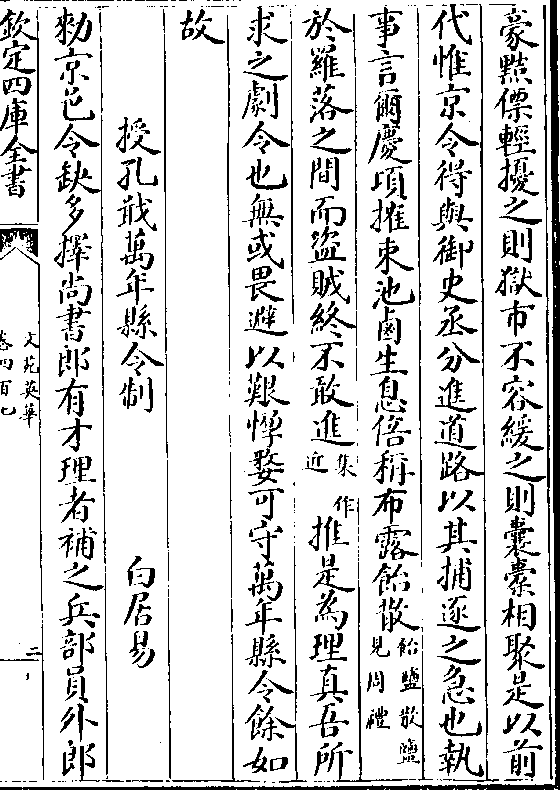 豪黠僄輕擾之則獄市不容緩之則囊橐相聚是以前
代惟京令得與御史丞分進道路以其捕逐之急也執
事言爾慶頃推東池鹵生息倍稱布露飴散飴鹽散鹽見周禮
於羅落之間而盜賊終不敢進集作近推是為理真吾所
求之劇令也無或畏避以艱惸嫠可守萬年縣令餘如
故
授孔戢萬年縣令制 白居易
勑京邑令缺多擇尚書郎有才理者補之兵部員外郎
欽定四庫全書
文苑英華
卷四百七
二